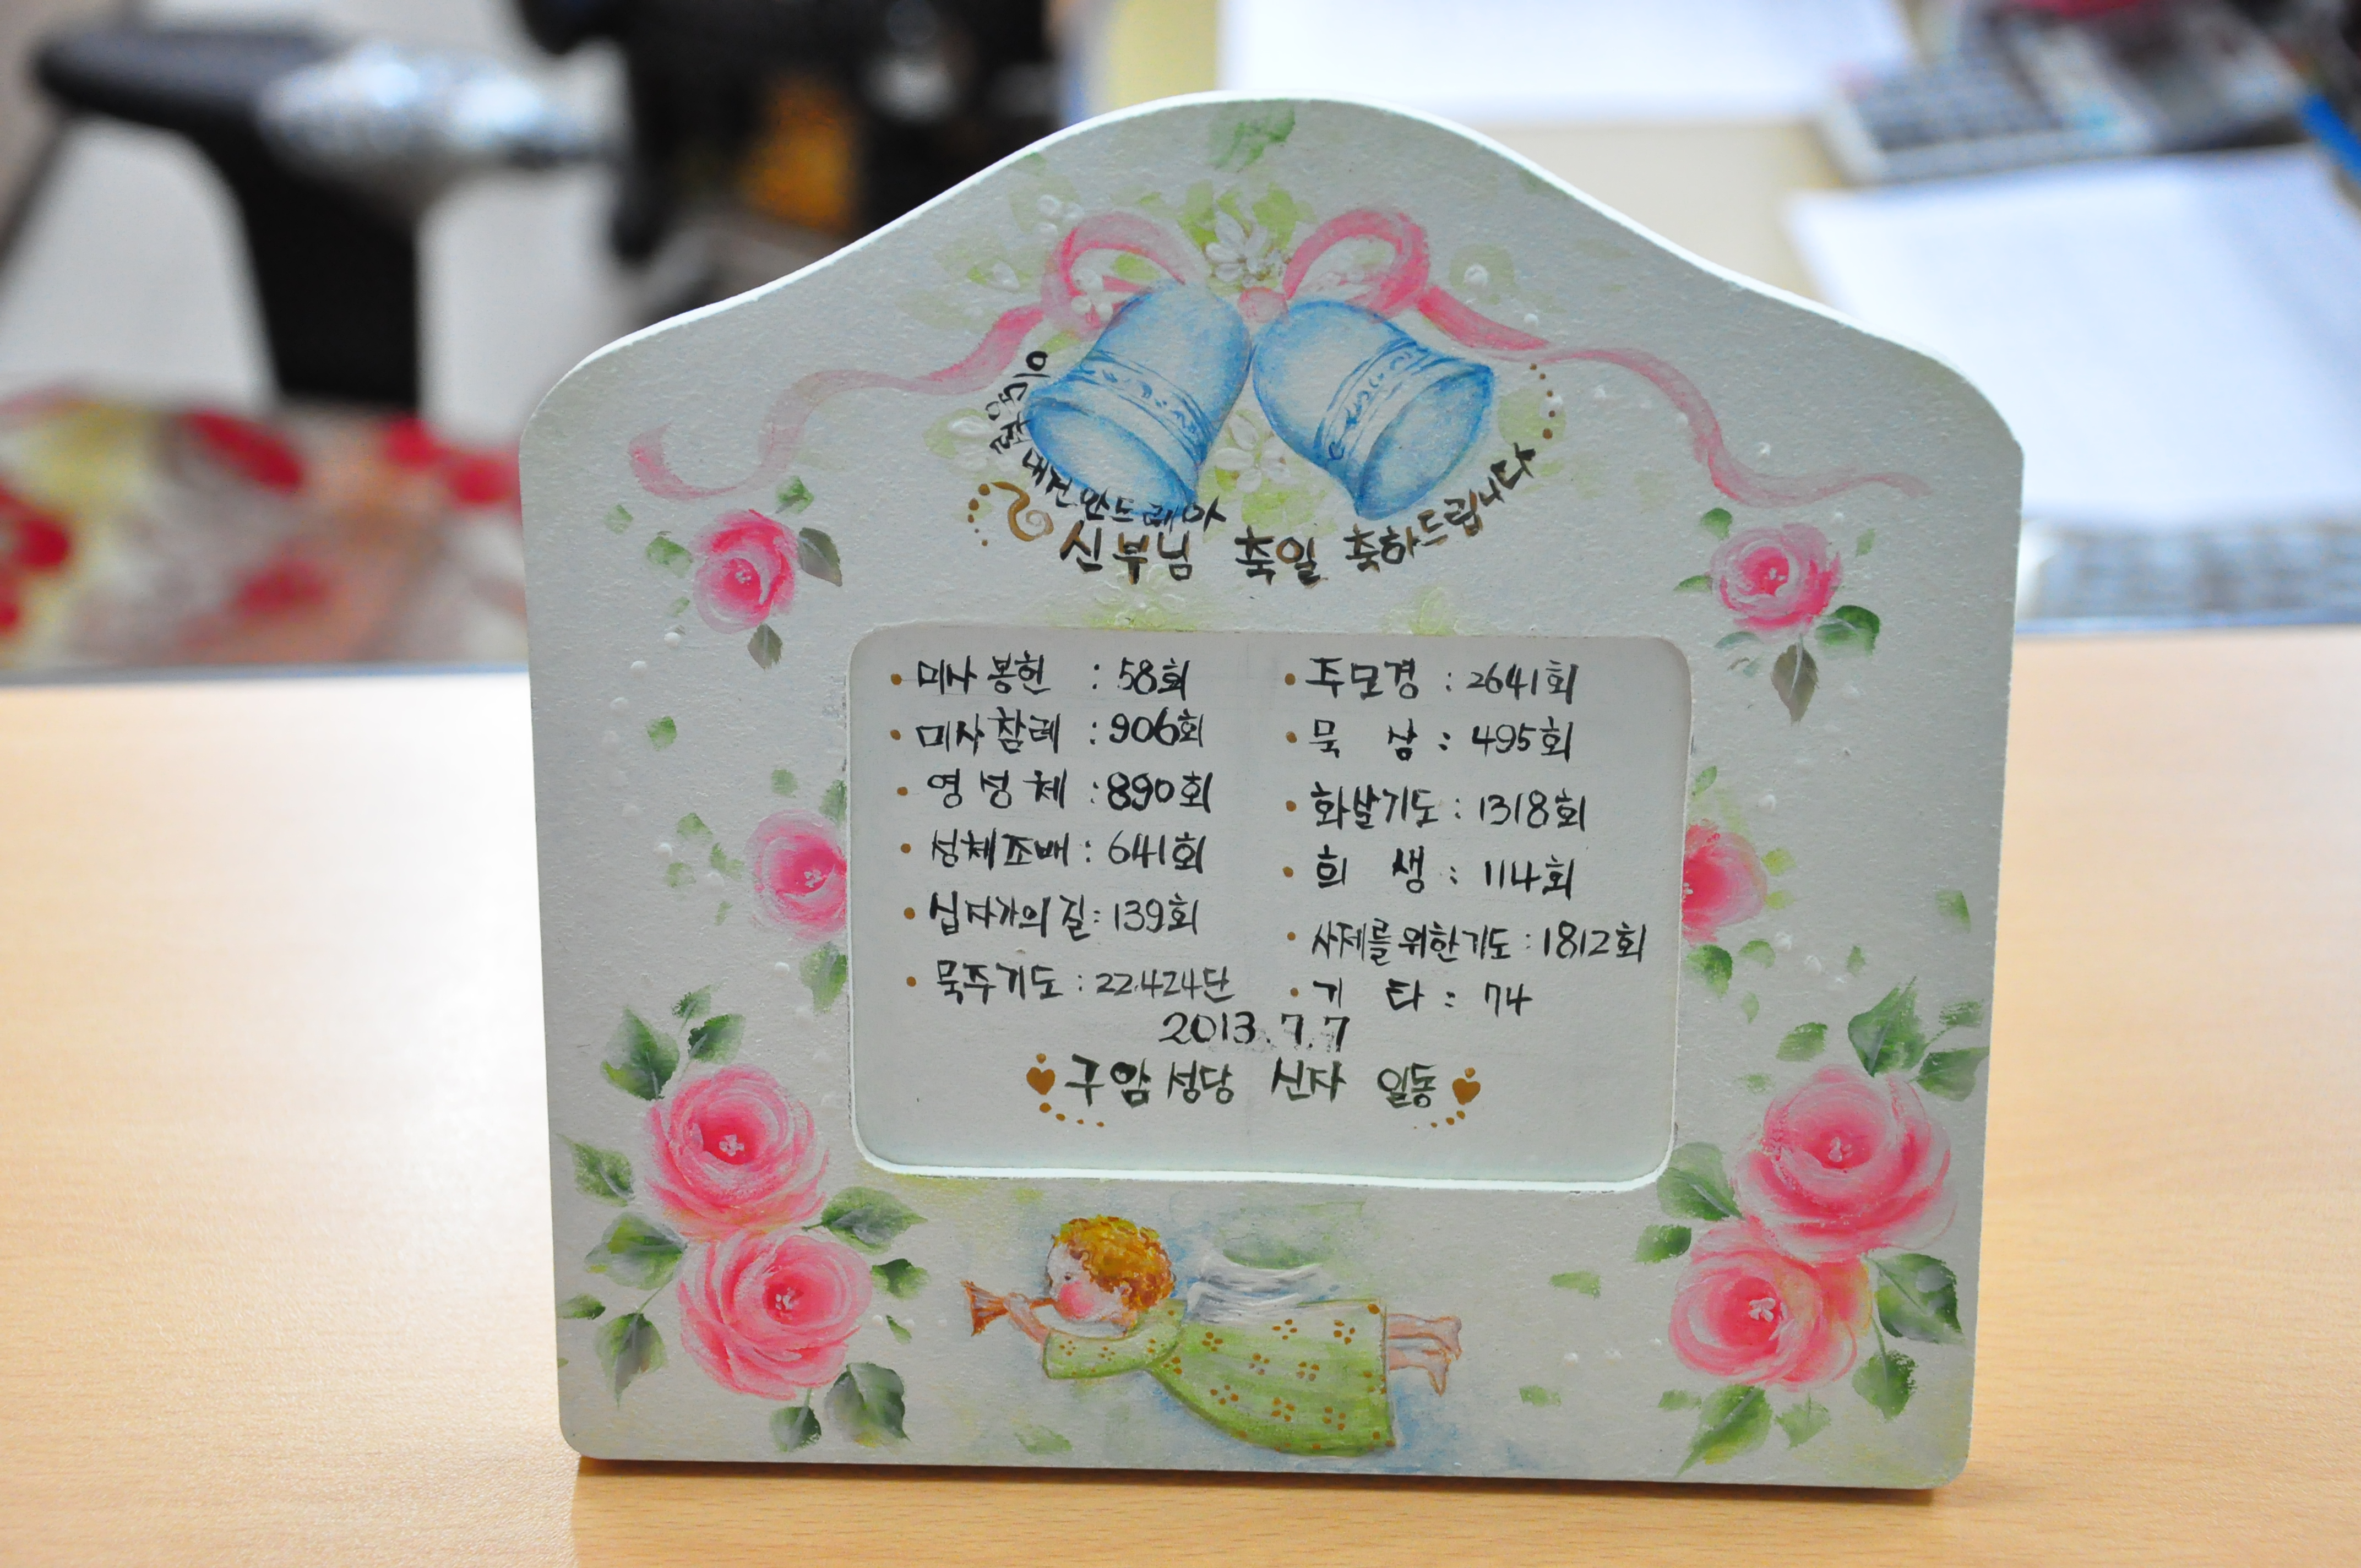 대건안드레아
신부님 축일 축하드립니다
• 미사봉헌 : 58회
• 미사참례 : 906회
• 영성체 : 890회
• 성체조배 : 641회
• 십자가의길 : 139회
• 묵주기도 : 22.424단
• 주모경 : 2641회
• 묵상 : 495회
• 화살기도 : 1318회
• 희생 : 114회
• 사제를위한기도 : 1812회
• 기타 : 74
2013.7.7
구암성당 신자 일동